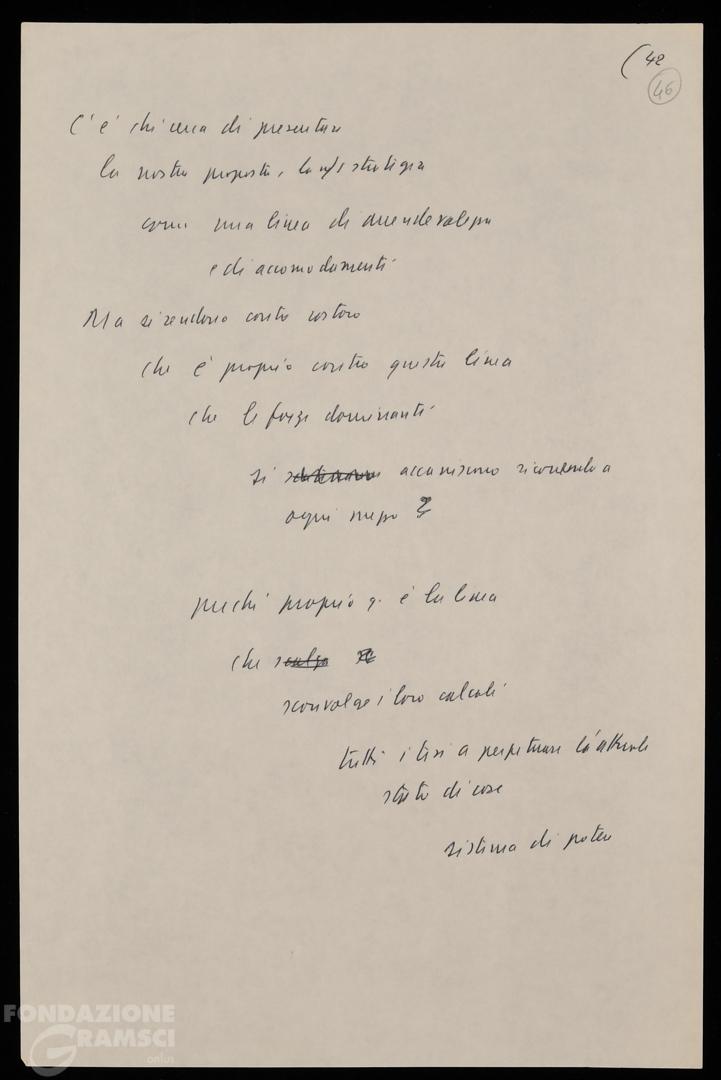 (42
46
C'è chi cerca di presentare
la nostra proposta, la n/s strategia
come una linea di arrendevolezza
e di accomodamenti
Ma si rendono conto costoro
che è proprio contro questa linea
che le forze dominanti
si accaniscono ricorrendo a
ogni mezzo ?
perché proprio q. è la linea
che
sconvolge i loro calcoli
tutti tesi a perpetuare l'attuale
stato di cose
sistema di potere
FONDAZIONE
GRAMSCI
onlus